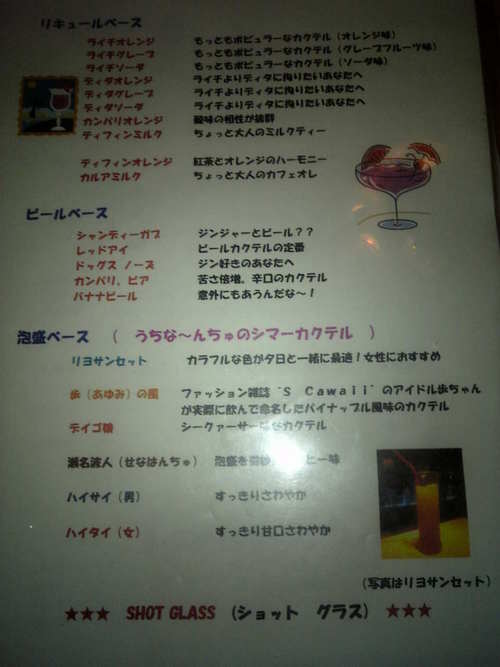 リキュールベース
ライチオレンジ　もっともポピュラーなカクテル（オレンジ味）
ライチグレープ　もっともポピュラーなカクテル（グレープフルーツ味）
ライチソーダ　もっともポピュラーなカクテル（ソーダ味）
ディタオレンジ　ライチよりディタに拘りたいあなたへ
ディタグレープ　ライチよりディタに拘りたいあなたへ
ディタソーダ　ライチよりディタに拘りたいあなたへ
カンパリオレンジ　酸味の相性が抜群
ティフィンミルク　ちょっと大人のミルクティー
ティフィンオレンジ　紅茶とオレンジのハーモニー
カルアミルク　ちょっと大人のカフェオレ
ビールベース
シャンディーガフ　ジンジャーとビール？？
レッドアイ　ビールカクテルの定番
ドッグス ノーズ　ジン好きのあなたへ
カンパリ、ビア　苦さ倍増、辛口のカクテル
バナナビール　意外にもあうんだな～！
泡盛ベース　（　うちな～んちゅのシマーカクテル　）
リヨサンセット　カラフルな色が夕日と一緒に最適！女性におすすめ
歩（あゆみ）の風　ファッション雑誌“S Cawaii”のアイドル歩ちゃん
が実際に飲んで命名したパイナップル風味のカクテル
デイゴ　シークァーサー カクテル
瀬名波人（せなはんちゅ）　泡盛を 一味
ハイサイ（男）　すっきりさわやか
ハイタイ（女）　すっきり甘口さわやか
（写真はリヨサンセット）
★★★　SHOT GLASS　（ショット　グラス）　★★★